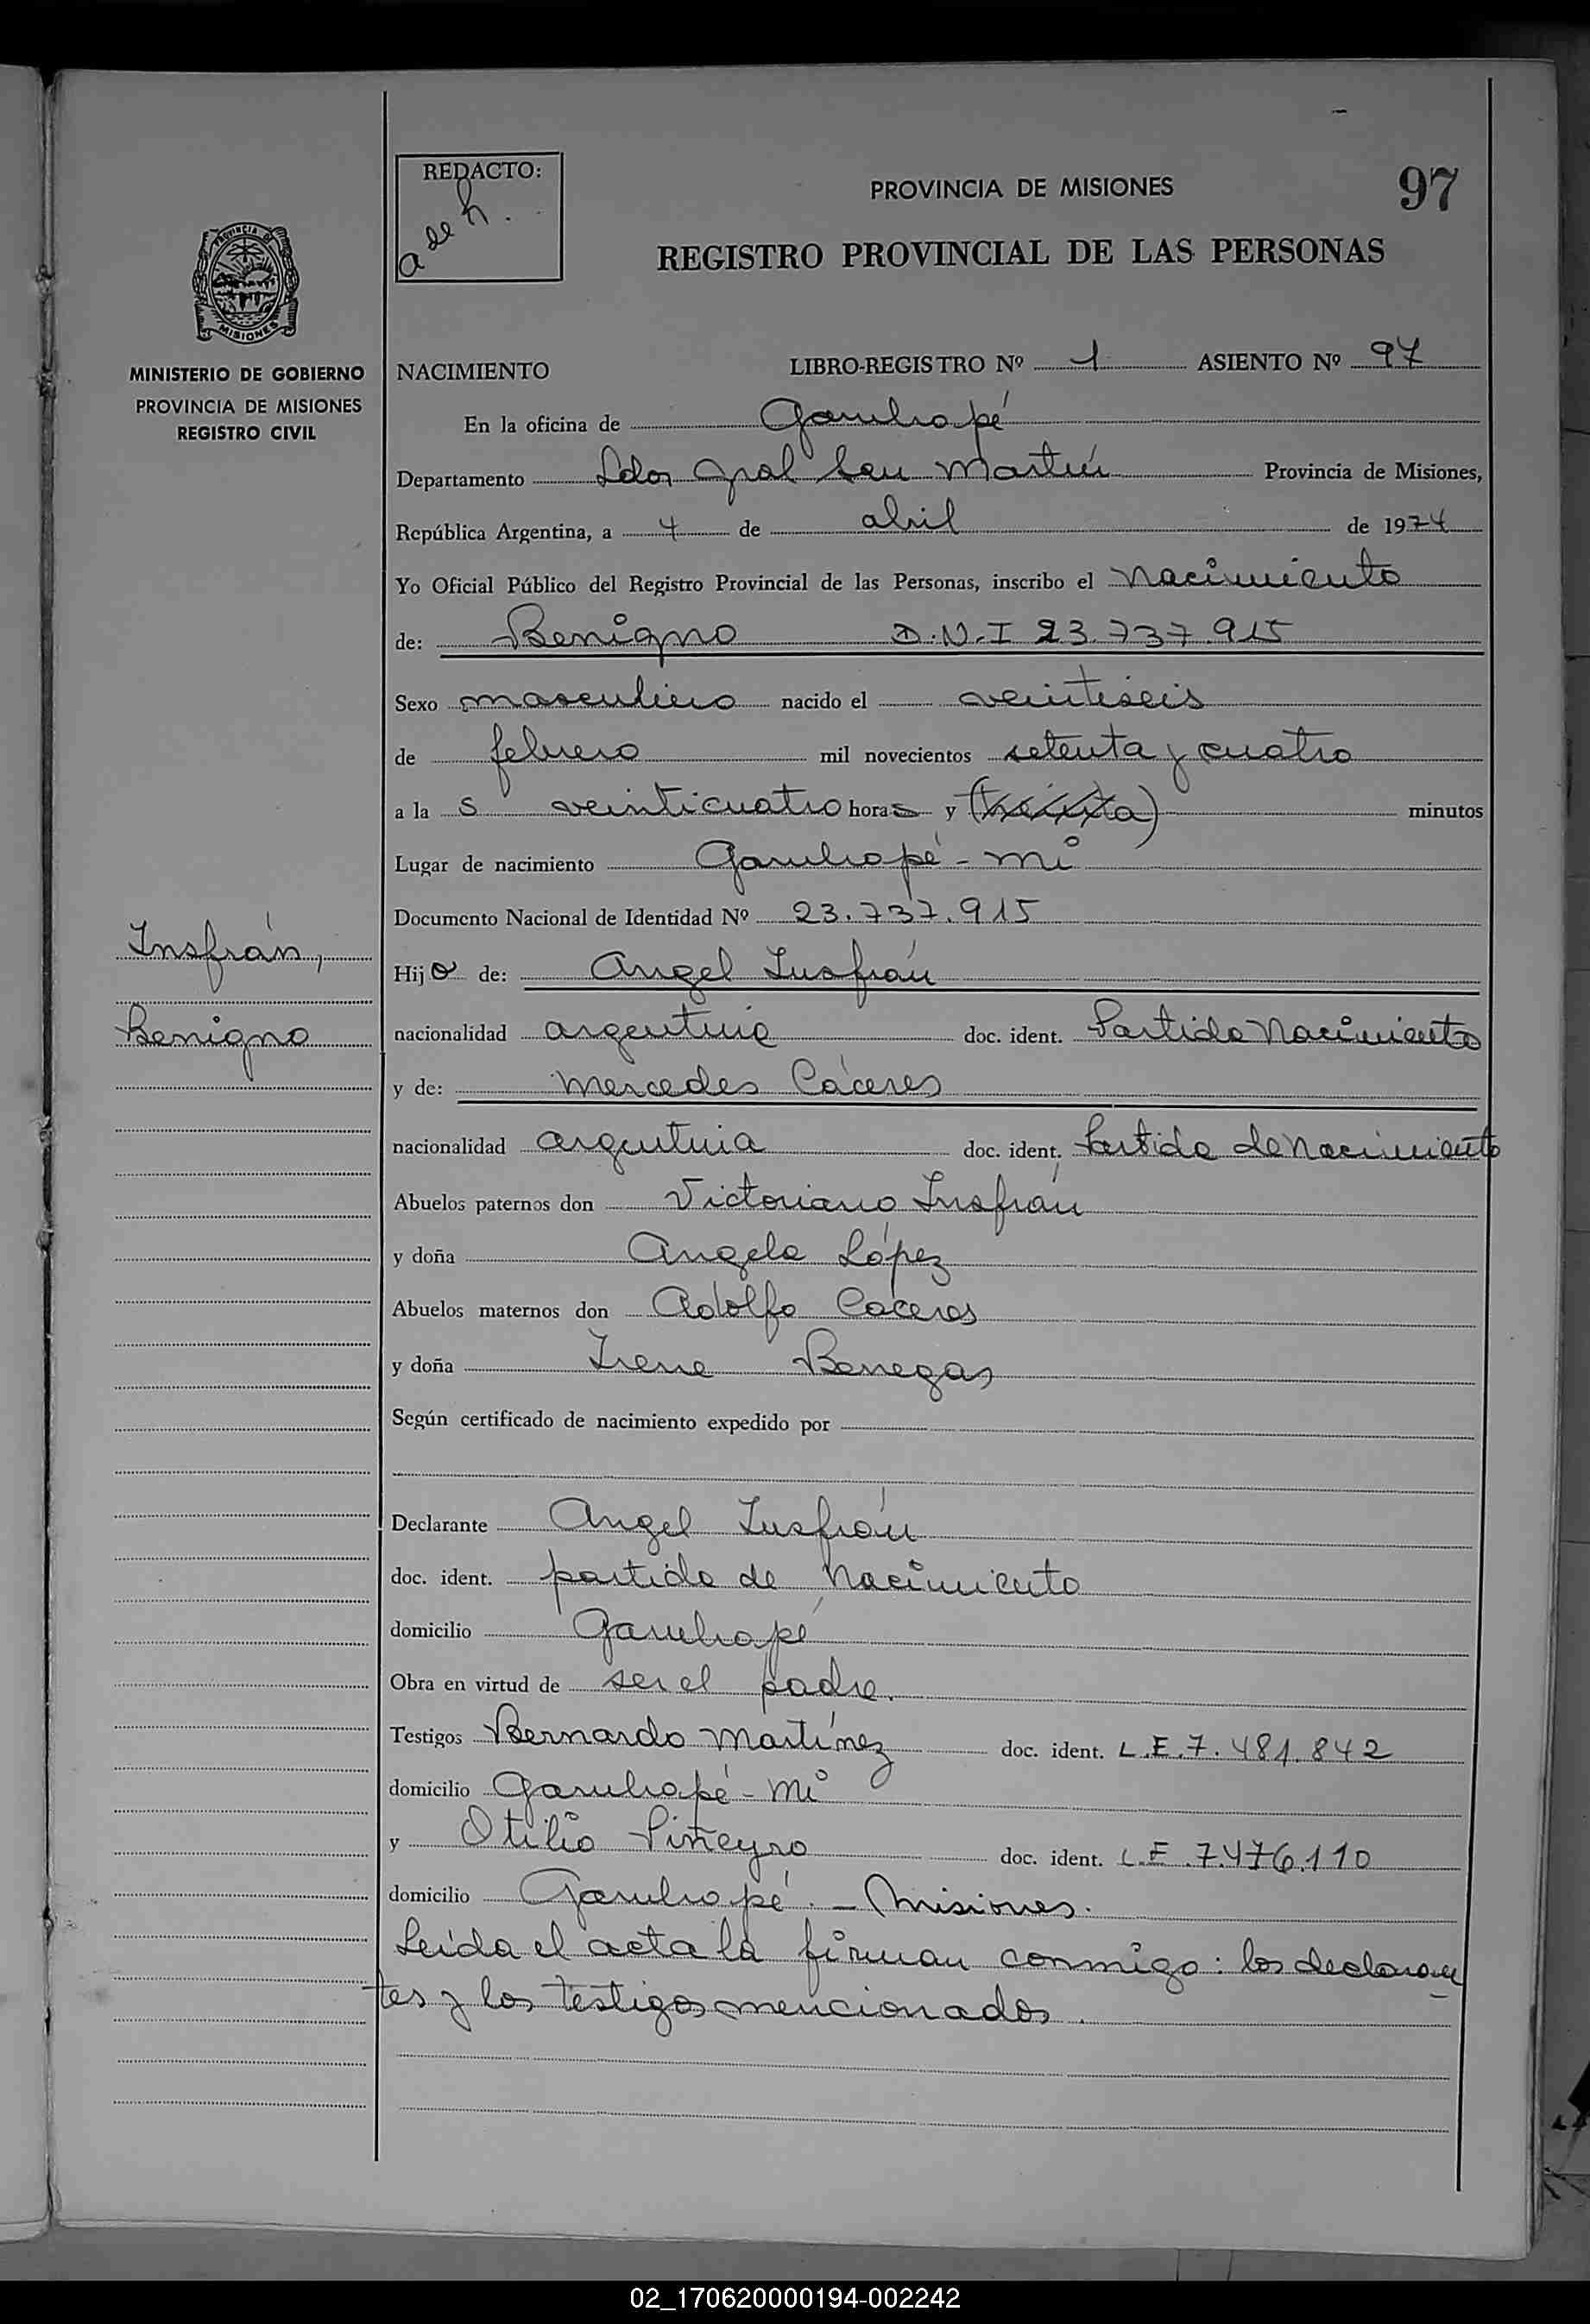 REDACTO:
a de h.
PROVINCIA DE MISIONES
97
REGISTRO PROVINCIAL DE LAS PERSONAS
PROVINCIA DE
MISIONES
MINISTERIO DE GOBIERNO
PROVINCIA DE MISIONES
REGISTRO CIVIL
NACIMIENTO LIBRO-REGISTRO Nº 1 ASIENTO Nº 97
En la oficina de Garuhapé
Departamento Ldor Gral San Martín Provincia de Misiones,
República Argentina, a 4 de abril de 1974
Yo Oficial Público del Registro Provincial de las Personas, inscribo el nacimiento
de: Benigno D.N.I 23.737.915
Sexo masculino nacido el veintiseis
de febrero mil novecientos setenta y cuatro
a las veinticuatro horas y (treinta) minutos
Lugar de nacimiento Garuhapé - Mi
Documento Nacional de Identidad Nº 23.737.915
Insfrán,
Benigno
Hijo de: Angel Insfrán
nacionalidad argentina doc. ident. Partida Nacimiento
y de: Mercedes Cáceres
nacionalidad argentina doc. ident. Partida de Nacimiento
Abuelos paternos don Victoriano Insfrán
y doña Angela López
Abuelos maternos don Adolfo Cáceres
y doña Irene Benegas
Según certificado de nacimiento expedido por
Declarante Angel Insfrán
doc. ident. partida de Nacimiento
domicilio Garuhapé
Obra en virtud de ser el padre.
Testigos Bernardo Martínez doc. ident. L.E.7.481.842
domicilio Garuhapé - Mi
y Otilio Piñeyro doc. ident. L.E.7.476.110
domicilio Garuhapé. - Misiones.
Leída el acta la firman conmigo: los declaran
tes y los testigos mencionados.
02_170620000194-002242